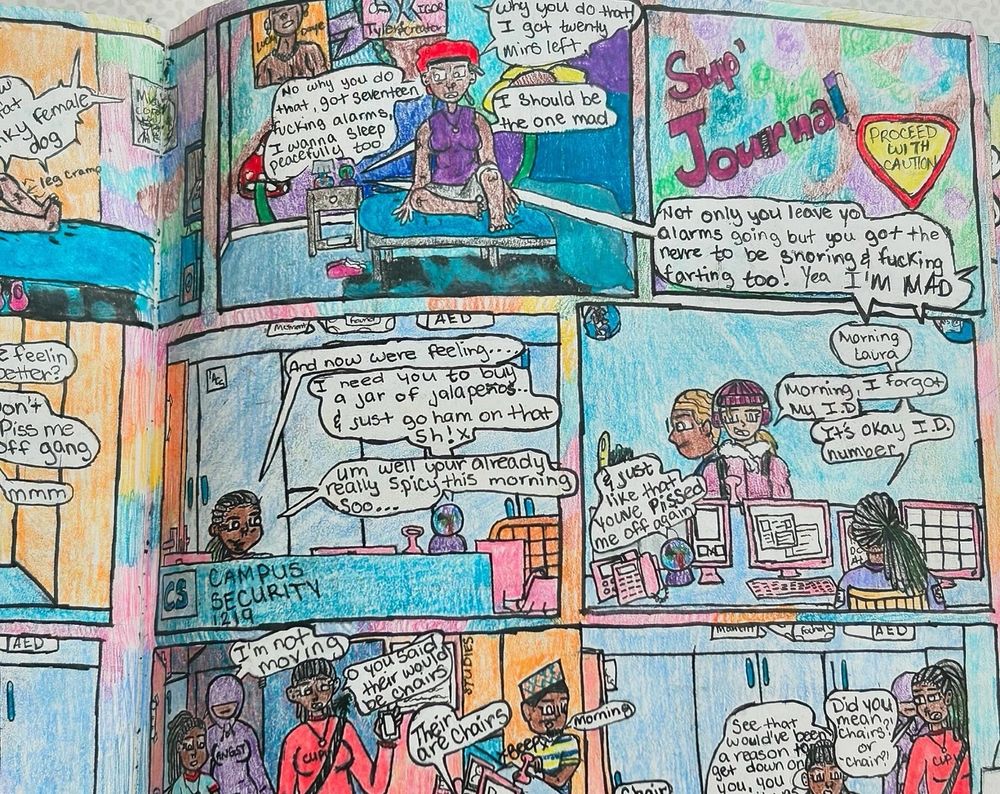 ky female
dog
leg cramp
IGOR
Why you do that
I got twenty
mins left.
No why you do
that, got seventeen
fucking alarms,
I wanna sleep
peacefully too
I should be
the one mad
Sup'
Journal
PROCEED
WITH
CAUTION
Not only you leave yo
alarms going but you got the
nerve to be snoring & fucking
farting too! Yea I'M MAD
e feelin
etter?
on't
Piss me
off gang
mmm
AED
And now were feeling....
I need you to buy
a jar of jalapeños...
& just go ham on that
sh!x
um well your already
really spicy this morning
soo...
CS
CAMPUS
SECURITY
1219
Morning
Laura
Morning, I forgot
My I.D
It's okay I.D.
number
& just
like that
youve Pissed
me off again
AED
I'm not
moving
o you said
their would
be chairs
STUDIES
ANGST
CUP
Their
are chairs
Beep
Morning
Chair
AED
See that
would've been
a reason to
get down on
you, you
Did you
mean
chairs'
or
"chair?"
CUP